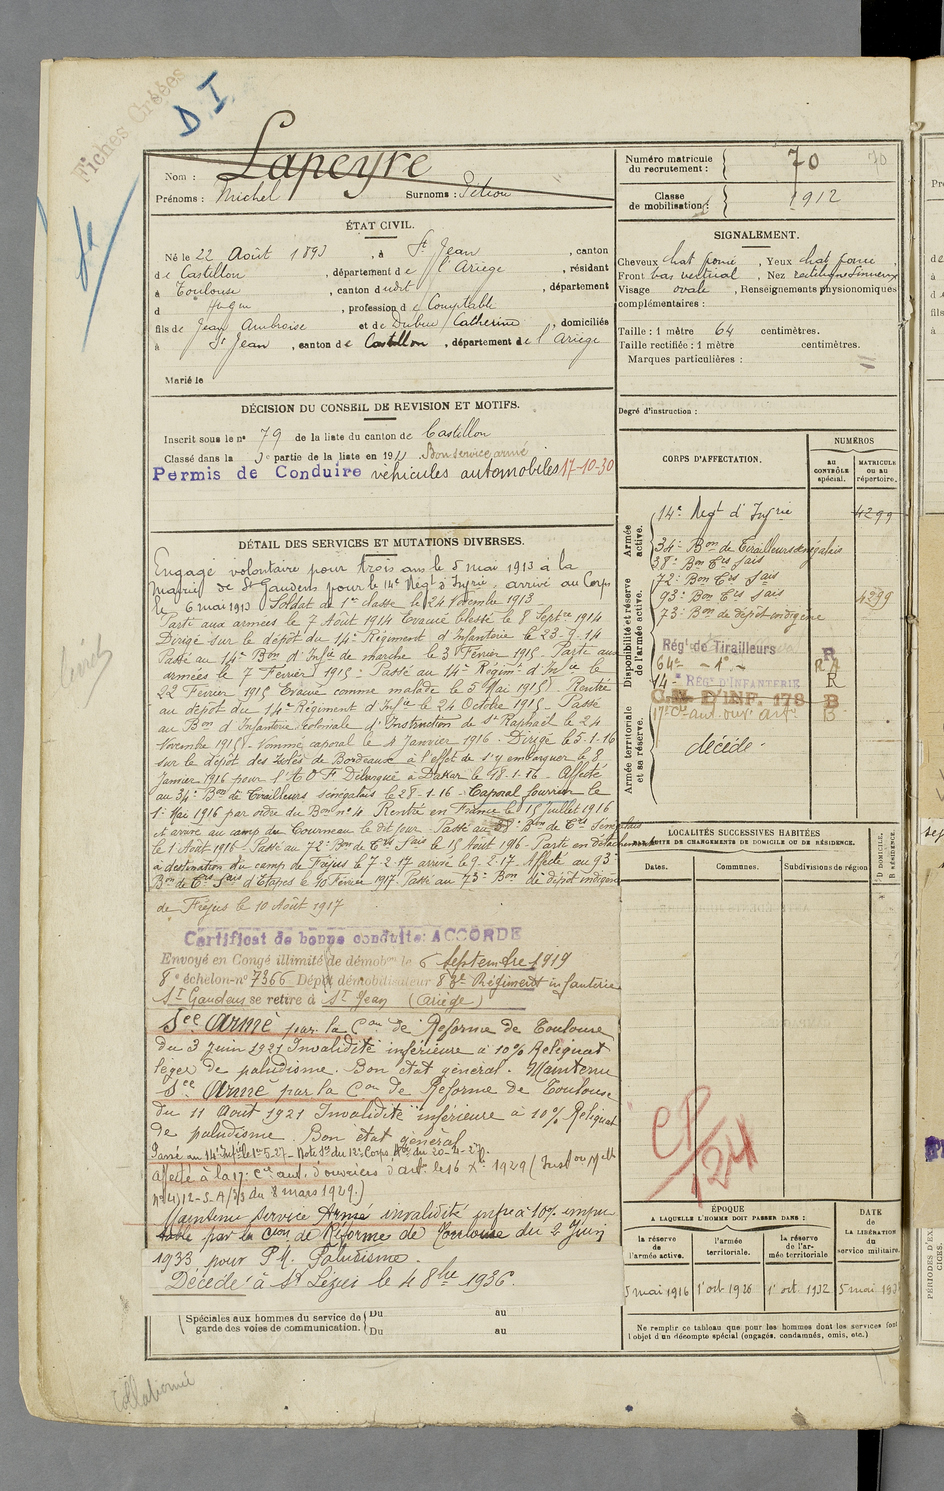 Fiches Créées
D.I.
Nom : Lapeyre
Prénoms : Michel Surnoms :
Numéro matricule du recrutement : 70
70
Classe de mobilisation : 1912
ÉTAT CIVIL.
Né le 22 Août 1893, à St Jean, canton
de Castillon, département de l'Ariège, résidant
à Toulouse, canton dudit, département
d, profession de Comptable
fils de Jean Ambroise et de Catherine, domiciliés
à St Jean, canton de Castillon, département de l'Ariège
Marié le
SIGNALEMENT.
Cheveux chat foncé, Yeux chat foncé,
Front bas vertical, Nez rectiligne Sinueux
Visage ovale, Renseignements physionomiques
complémentaires :
Taille : 1 mètre 64 centimètres.
Taille rectifiée : 1 mètre centimètres.
Marques particulières :
Degré d'instruction :
DÉCISION DU CONSEIL DE REVISION ET MOTIFS.
Inscrit sous le no 79 de la liste du canton de Castillon
Classé dans la 3e partie de la liste en 191 Bon service armé
Permis de Conduire véhicules automobiles 17-10-30
DÉTAIL DES SERVICES ET MUTATIONS DIVERSES.
Engagé volontaire pour trois ans le 5 mai 1913 à la
Mairie de St Gaudens pour le 14e Régt d'Infrie arrivé au Corps
le 6 mai 1913 Soldat de 1re classe le 24 Novembre 1913
Parti aux armées le 7 Août 1914 Evacué blessé le 8 Septre 1914
Dirigé sur le dépôt du 14e Régiment d'Infanterie le 23-9-14
Passé au 14e Bon d'Infie de marche le 3 Février 1915. Parti aux
armées le 7 Février 1915. Passé au 14e Régimt d'Infie le
22 Février 1915 Evacué comme malade le 5 Mai 1915. Rentré
au dépôt du 14e Régiment d'Infie le 24 Octobre 1915. Passé
au Bon d'Infanterie coloniale d'Instruction de St Raphaël le 24
Novembre 1915. Nommé caporal le 4 Janvier 1916. Dirigé le 5-1-16
sur le dépôt des isolés de Bordeaux à l'effet de s'y embarquer le 8
Janvier 1916 pour l'A O F Débarqué à Dakar le 18-1-16 - Affecté
au 34e Bon de Tirailleurs sénégalais le 28-1-16 - Caporal fourrier le
1er Mai 1916 par ordre du Bon no 4 Rentré en France le 15 Juillet 1916
et arrivé au camp du Courneau le dit jour - Passé au 38e Bon de Tirs Sénégalais
le 1 Août 1916 - Passé au 72e Bon de Tirs Sais le 15 Août 1916 - Parti en détachement
à destination du camp de Fréjus le 7-2-17 arrivé le 9-2-17 Affecté au 93e
Bon de Tirs Sais d'Etapes le 10 Février 1917. Passé au 73e Bon de dépôt indigène
de Fréjus le 10 Août 1917
Certificat de bonne conduite ACCORDÉ
Envoyé en Congé illimité de démobon le 6 Septembre 1919
8e échelon-no 7366 Dépôt démobilisateur 83e Régiment infanterie
St Gaudens se retire à St Jean (Ariège)
Sce Armé par la Con de Réforme de Toulouse
du 3 Juin 1921 Invalidité inférieure à 10% Reliquat
léger de paludisme. Bon état général. Maintenu
Sce Armé par la Con de Réforme de Toulouse
du 11 Août 1921 Invalidité inférieure à 10% Reliquat
de paludisme. Bon état général
Passé au 14e Infie le 1er-5-27 - Note Son du 17e Corps du 20-4-27
Affecté à la 17e Cie aut. d'ouvriers d'art. le 16 Xe 1929 (Inston Melle
no 4) 12-S-A/3/3 du 8 mars 1929.)
Maintenu service Armé invalidité infre à 10% impu
table par la Con de Réforme de Toulouse du 2 Juin
1933 pour P.M. Paludisme.
Décédé à St Lizier le 4 8bre 1936.
Spéciales aux hommes du service de garde des voies de communication. Du au
Du au
CORPS D'AFFECTATION.
NUMÉROS
AU CONTRÔLE spécial.
MATRICULE OU AU répertoire.
Armée active.
Disponibilité et réserve de l'armée active.
Armée territoriale et sa réserve.
14e Régt d'Infrie 4299
34e Bon de Tirailleurs sénégalais
38e Bon Tirs Sais
72e Bon Tirs Sais
93e Bon Tirs Sais 4299
73e Bon de dépôt indigène
Rég' de Tirailleurs R
64e
14e RÉG' D'INFANTERIE R
C.M. D'INF. 178 B
17e Cie aut. ouv. art. B
décédé.
LOCALITÉS SUCCESSIVES HABITÉES
PAR SUITE DE CHANGEMENTS DE DOMICILE OU DE RÉSIDENCE.
Dates.
Communes.
Subdivisions de région
D DOMICILE.
R RÉSIDENCE.
CP/24
ÉPOQUE
A LAQUELLE L'HOMME DOIT PASSER DANS :
DATE de LA LIBÉRATION du service militaire.
la réserve de l'armée active.
l'armée territoriale.
la réserve de l'armée territoriale
5 mai 1916
1er oct. 1926
1er oct. 1932
5 mai 193
Ne remplir ce tableau que pour les hommes dont les services font
l'objet d'un décompte spécial (engagés, condamnés, omis, etc.)
Collationné
PÉRIODES D'EX
CICES.